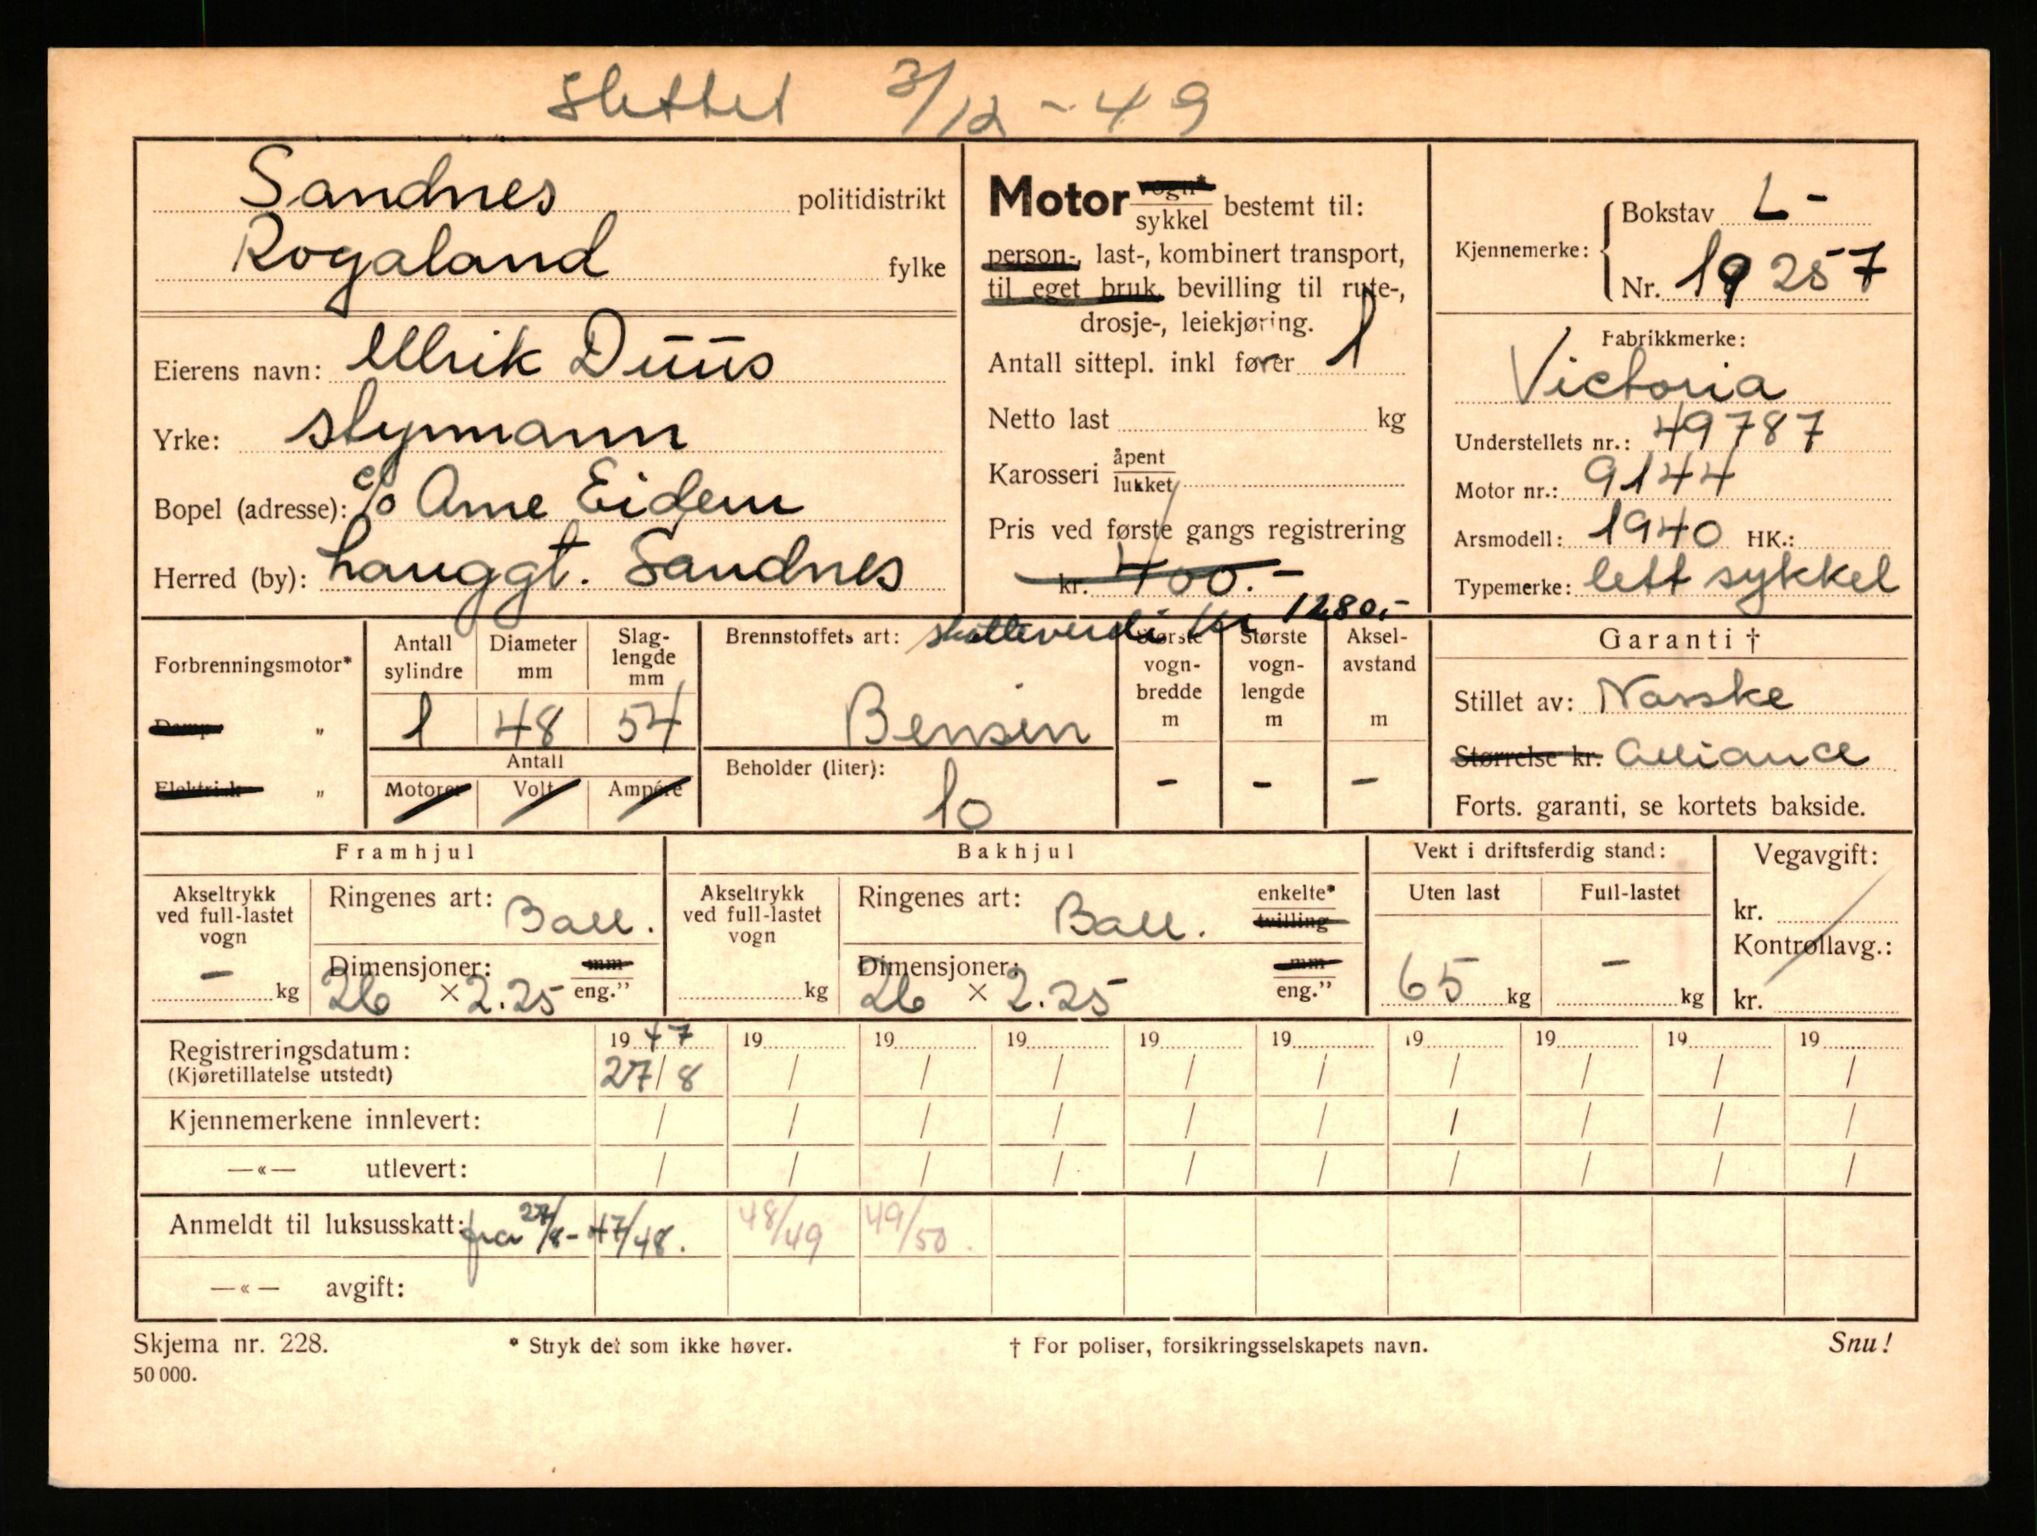 slettet 3/12 - 49
Sandnes politidistrikt
Rogaland fylke
Eierens navn: Ulrik Duus
Yrke: styrmann
Bopel (adresse): c/o Arne Eidem
Herred (by): Langgt. Sandnes
Motor vogn* sykkel bestemt til:
person-, last-, kombinert transport,
til eget bruk, bevilling til rute-,
drosje-, leiekjøring.
Antall sittepl. inkl fører 1
Netto last kg
Karosseri åpent lukket
Pris ved første gangs registrering
kr. 400.-
skatteverdi kr 1280,-
Kjennemerke: Bokstav L-
Nr. 19257
Fabrikkmerke:
Victoria
Understellets nr.: 49787
Motor nr.: 9144
Arsmodell: 1940 HK.:
Typemerke: lett sykkel
Forbrenningsmotor*
Damp "
Elektrisk "
Antall sylindre 1
Diameter mm 48
Slaglengde mm 54
Antall
Motorer Volt Ampére
Brennstoffets art:
Bensin
Beholder (liter):
10
Største vognbredde m -
Største vognlengde m -
Akselavstand m -
Garanti †
Stillet av: Norske
Størrelse kr. Alliance
Forts. garanti, se kortets bakside.
Framhjul
Akseltrykk ved full-lastet vogn
- kg
Ringenes art: Ball.
Dimensjoner: mm
26 × 2.25 eng."
Bakhjul
Akseltrykk ved full-lastet vogn
kg
Ringenes art: Ball. enkelte* tvilling
Dimensjoner: mm
26 × 2.25 eng."
Vekt i driftsferdig stand:
Uten last Full-lastet
65 kg - kg
Vegavgift:
kr.
Kontrollavg.:
kr.
Registreringsdatum: 1947 19 19 19 19 19 19 19 19 19
(Kjøretillatelse utstedt) 27/8 / / / / / / / / /
Kjennemerkene innlevert: / / / / / / / / / /
—«— utlevert: / / / / / / / / / /
Anmeldt til luksusskatt: fra 27/8- 47/48. 48/49 49/50.
—«— avgift:
Skjema nr. 228. * Stryk det som ikke høver. † For poliser, forsikringsselskapets navn. Snu!
50 000.